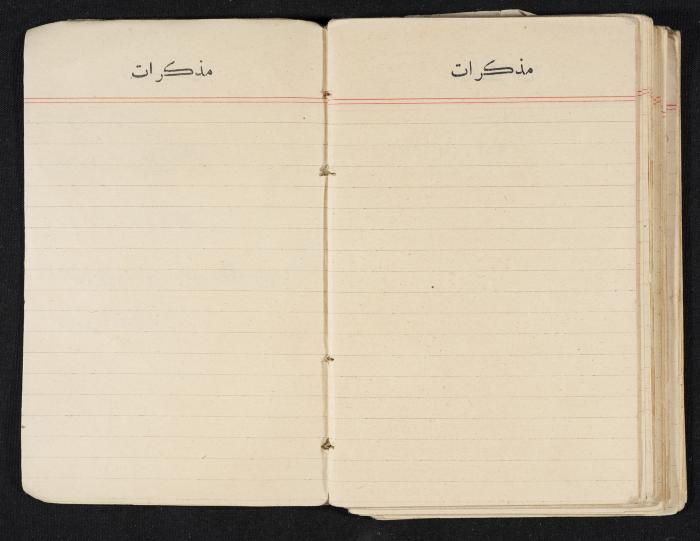 مذكرات
مذكرات